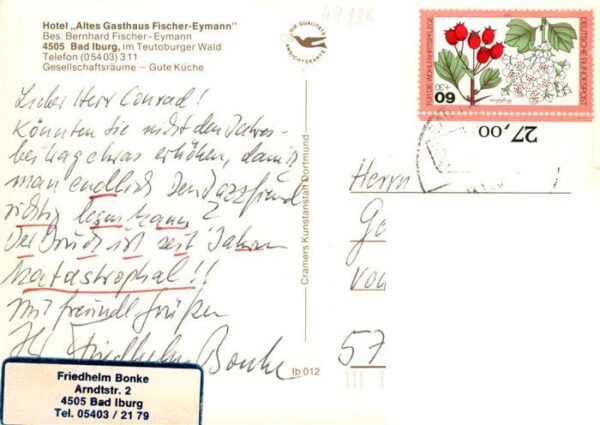 Hotel „Altes Gasthaus Fischer-Eymann"
Bes. Bernhard Fischer-Eymann
4505 Bad Iburg, im Teutoburger Wald
Telefon (05403) 311
Gesellschaftsräume – Gute Küche
Lieber Herr Conrad!
Könnten Sie nicht den Jahres-
beitrag etwas erhöhen, damit
man endlich den Jazzfreund
richtig lesen kann?
Der Druck ist seit Jahren
katastrophal!!
Mit freundl. Grüßen
Ihr Friedhelm Bonke
Friedhelm Bonke
Arndtstr. 2
4505 Bad Iburg
Tel. 05403 / 21 79
DIE QUALITÄTS
ANSICHTSKARTE
Cramers Kunstanstalt Dortmund
Ib 012
49186
FÜR DIE WOHLFAHRTSPFLEGE
60
+30
DEUTSCHE BUNDESPOST
27,00
Herrn
57